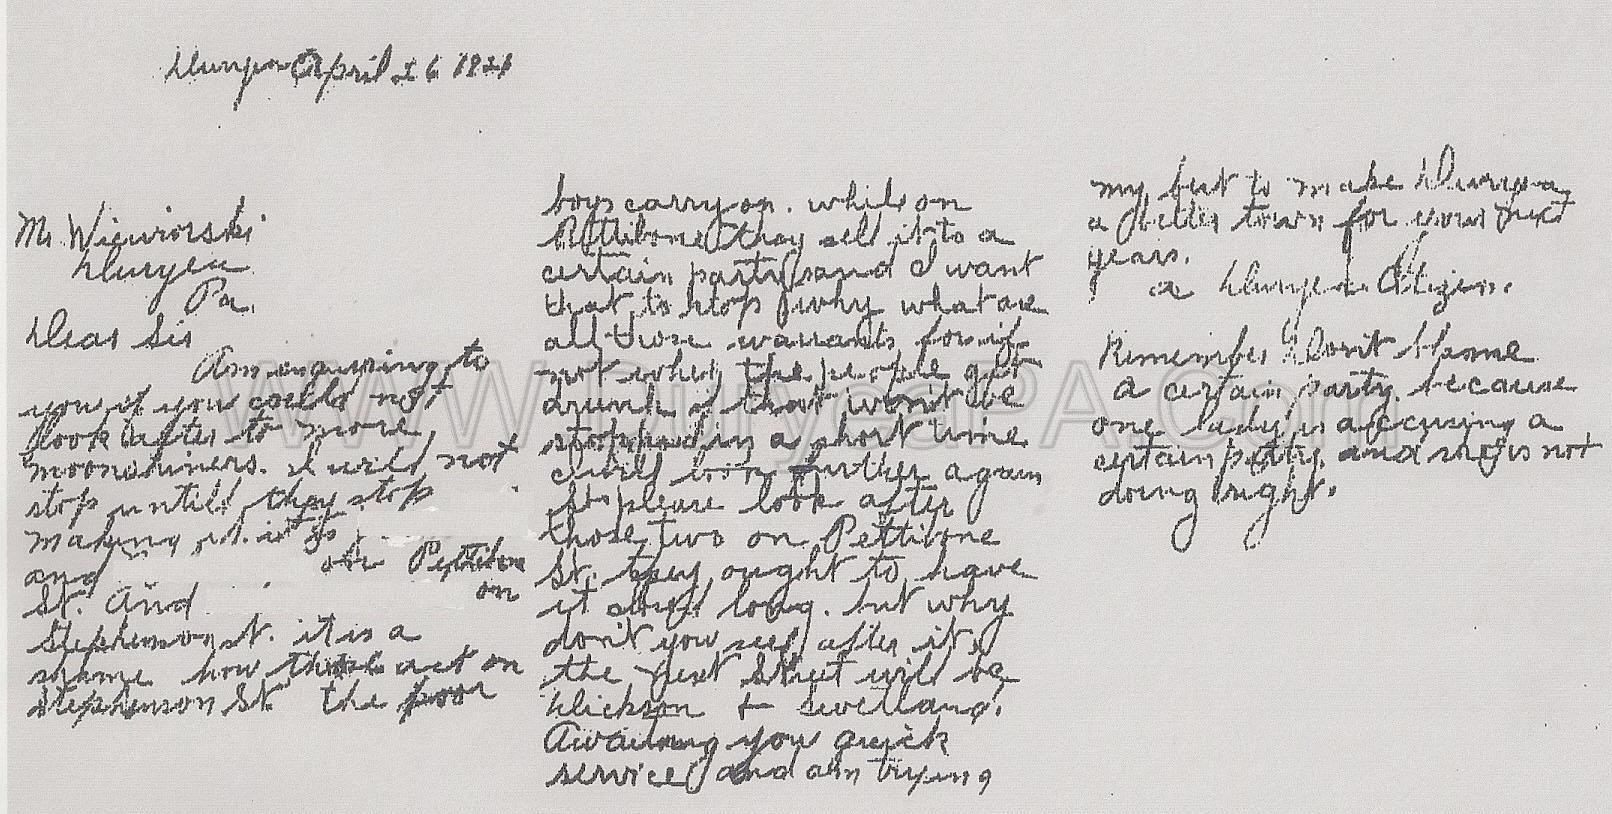 Duryea April 26 1921
Mr. Wiewiorski
Duryea
Pa.
Dear Sir
Am enquiring to
you if you could not
look after to more
moonshiners. I will not
stop until they stop
making it. it is
and on Pettibone
St. and on
Stephenson St. it is a
shame how these act on
Stephenson St. the poor
boys carry on. while on
Pettibone they sell it to a
certain party and I want
that to stop why what are
all those warrants for if
not when the people get
drunk if that won't be
stopped in a short time
I will look further again
So please look after
those two on Pettibone
St. they ought to have
it long. but why
don't you see after it,
the next Street will be
Dickson + Swetland.
Awaiting your quick
service and am trying
my best to make Duryea
a better town for your next
years.
a Duryea Citizen.
Remember Don't blame
a certain party, because
one lady is accusing a
certain party, and she is not
doing right.
WWW.DuryeaPA.Com